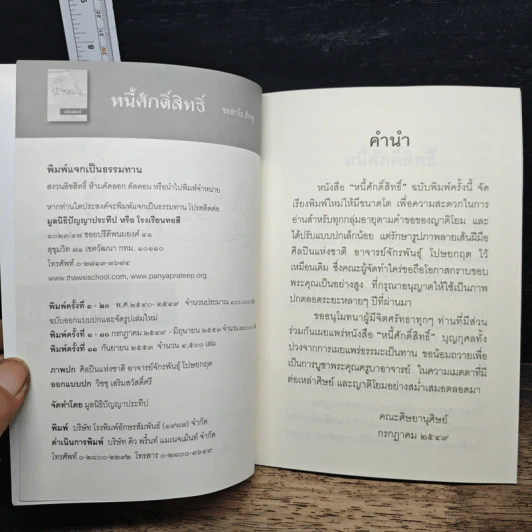 หนี้ศักดิ์สิทธิ์
ชยสาโร ภิกขุ
พิมพ์แจกเป็นธรรมทาน
สงวนลิขสิทธิ์ ห้ามคัดลอก ตัดตอน หรือนำไปพิมพ์จำหน่าย
หากท่านใดประสงค์จะพิมพ์แจกเป็นธรรมทาน โปรดติดต่อ
มูลนิธิปัญญาประทีป หรือ โรงเรียนทอสี
๑๐๒๓/๔๗ ซอยปรีดีพนมยงค์ ๔๑
สุขุมวิท ๗๑ เขตวัฒนา กทม. ๑๐๑๑๐
โทรศัพท์ ๐-๒๗๑๓-๓๖๗๔
www.thawsischool.com, www.panyaprateep.org
พิมพ์ครั้งที่ ๑ - ๒๐ พ.ศ.๒๕๔๐-๒๕๔๙ จำนวนประมาณ ๑๐๐,๐๐๐
ฉบับออกแบบปกและจัดรูปเล่มใหม่
พิมพ์ครั้งที่ ๑ - ๑๐ กรกฎาคม ๒๕๔๙ - มิถุนายน ๒๕๕๓ จำนวน
พิมพ์ครั้งที่ ๑๑ กันยายน ๒๕๕๓ จำนวน ๔,๕๐๐ เล่ม
ภาพปก ศิลปินแห่งชาติ อาจารย์จักรพันธุ์ โปษยกฤต
ออกแบบปก วิชชุ เสริมสวัสดิ์ศรี
จัดทำโดย มูลนิธิปัญญาประทีป
พิมพ์ บริษัท โรงพิมพ์อักษรสัมพันธ์ (๑๙๘๗) จำกัด
ดำเนินการพิมพ์ บริษัท คิว พริ้นท์ แมเนจเม้นท์ จำกัด
โทรศัพท์ ๐-๒๘๐๐-๒๒๙๒ โทรสาร ๐-๒๘๐๐-๓๖๔๙
คำนำ
หนังสือ "หนี้ศักดิ์สิทธิ์" ฉบับพิมพ์ครั้งนี้ จัด
เรียงพิมพ์ใหม่ให้มีขนาดโต เพื่อความสะดวกในการ
อ่านสำหรับทุกกลุ่มอายุตามคำขอของญาติโยม และ
ได้ปรับแบบปกเล็กน้อย แต่รักษารูปภาพลายเส้นฝีมือ
ศิลปินแห่งชาติ อาจารย์จักรพันธุ์ โปษยกฤต ไว้
เหมือนเดิม ซึ่งคณะผู้จัดทำใคร่ขอถือโอกาสกราบขอบ
พระคุณเป็นอย่างสูง ที่กรุณาอนุญาตให้ใช้เป็นภาพ
ปกตลอดระยะหลายๆ ปีที่ผ่านมา
ขออนุโมทนาผู้มีจิตศรัทธาทุกๆ ท่านที่มีส่วน
ร่วมกันเผยแพร่หนังสือ "หนี้ศักดิ์สิทธิ์" บุญกุศลทั้ง
ปวงจากการเผยแพร่ธรรมะเป็นทาน ขอน้อมถวายเพื่อ
เป็นการบูชาพระคุณครูบาอาจารย์ ในความเมตตาที่มี
ต่อเหล่าศิษย์ และญาติโยมอย่างสม่ำเสมอตลอดมา
คณะศิษยานุศิษย์
กรกฎาคม ๒๕๔๙